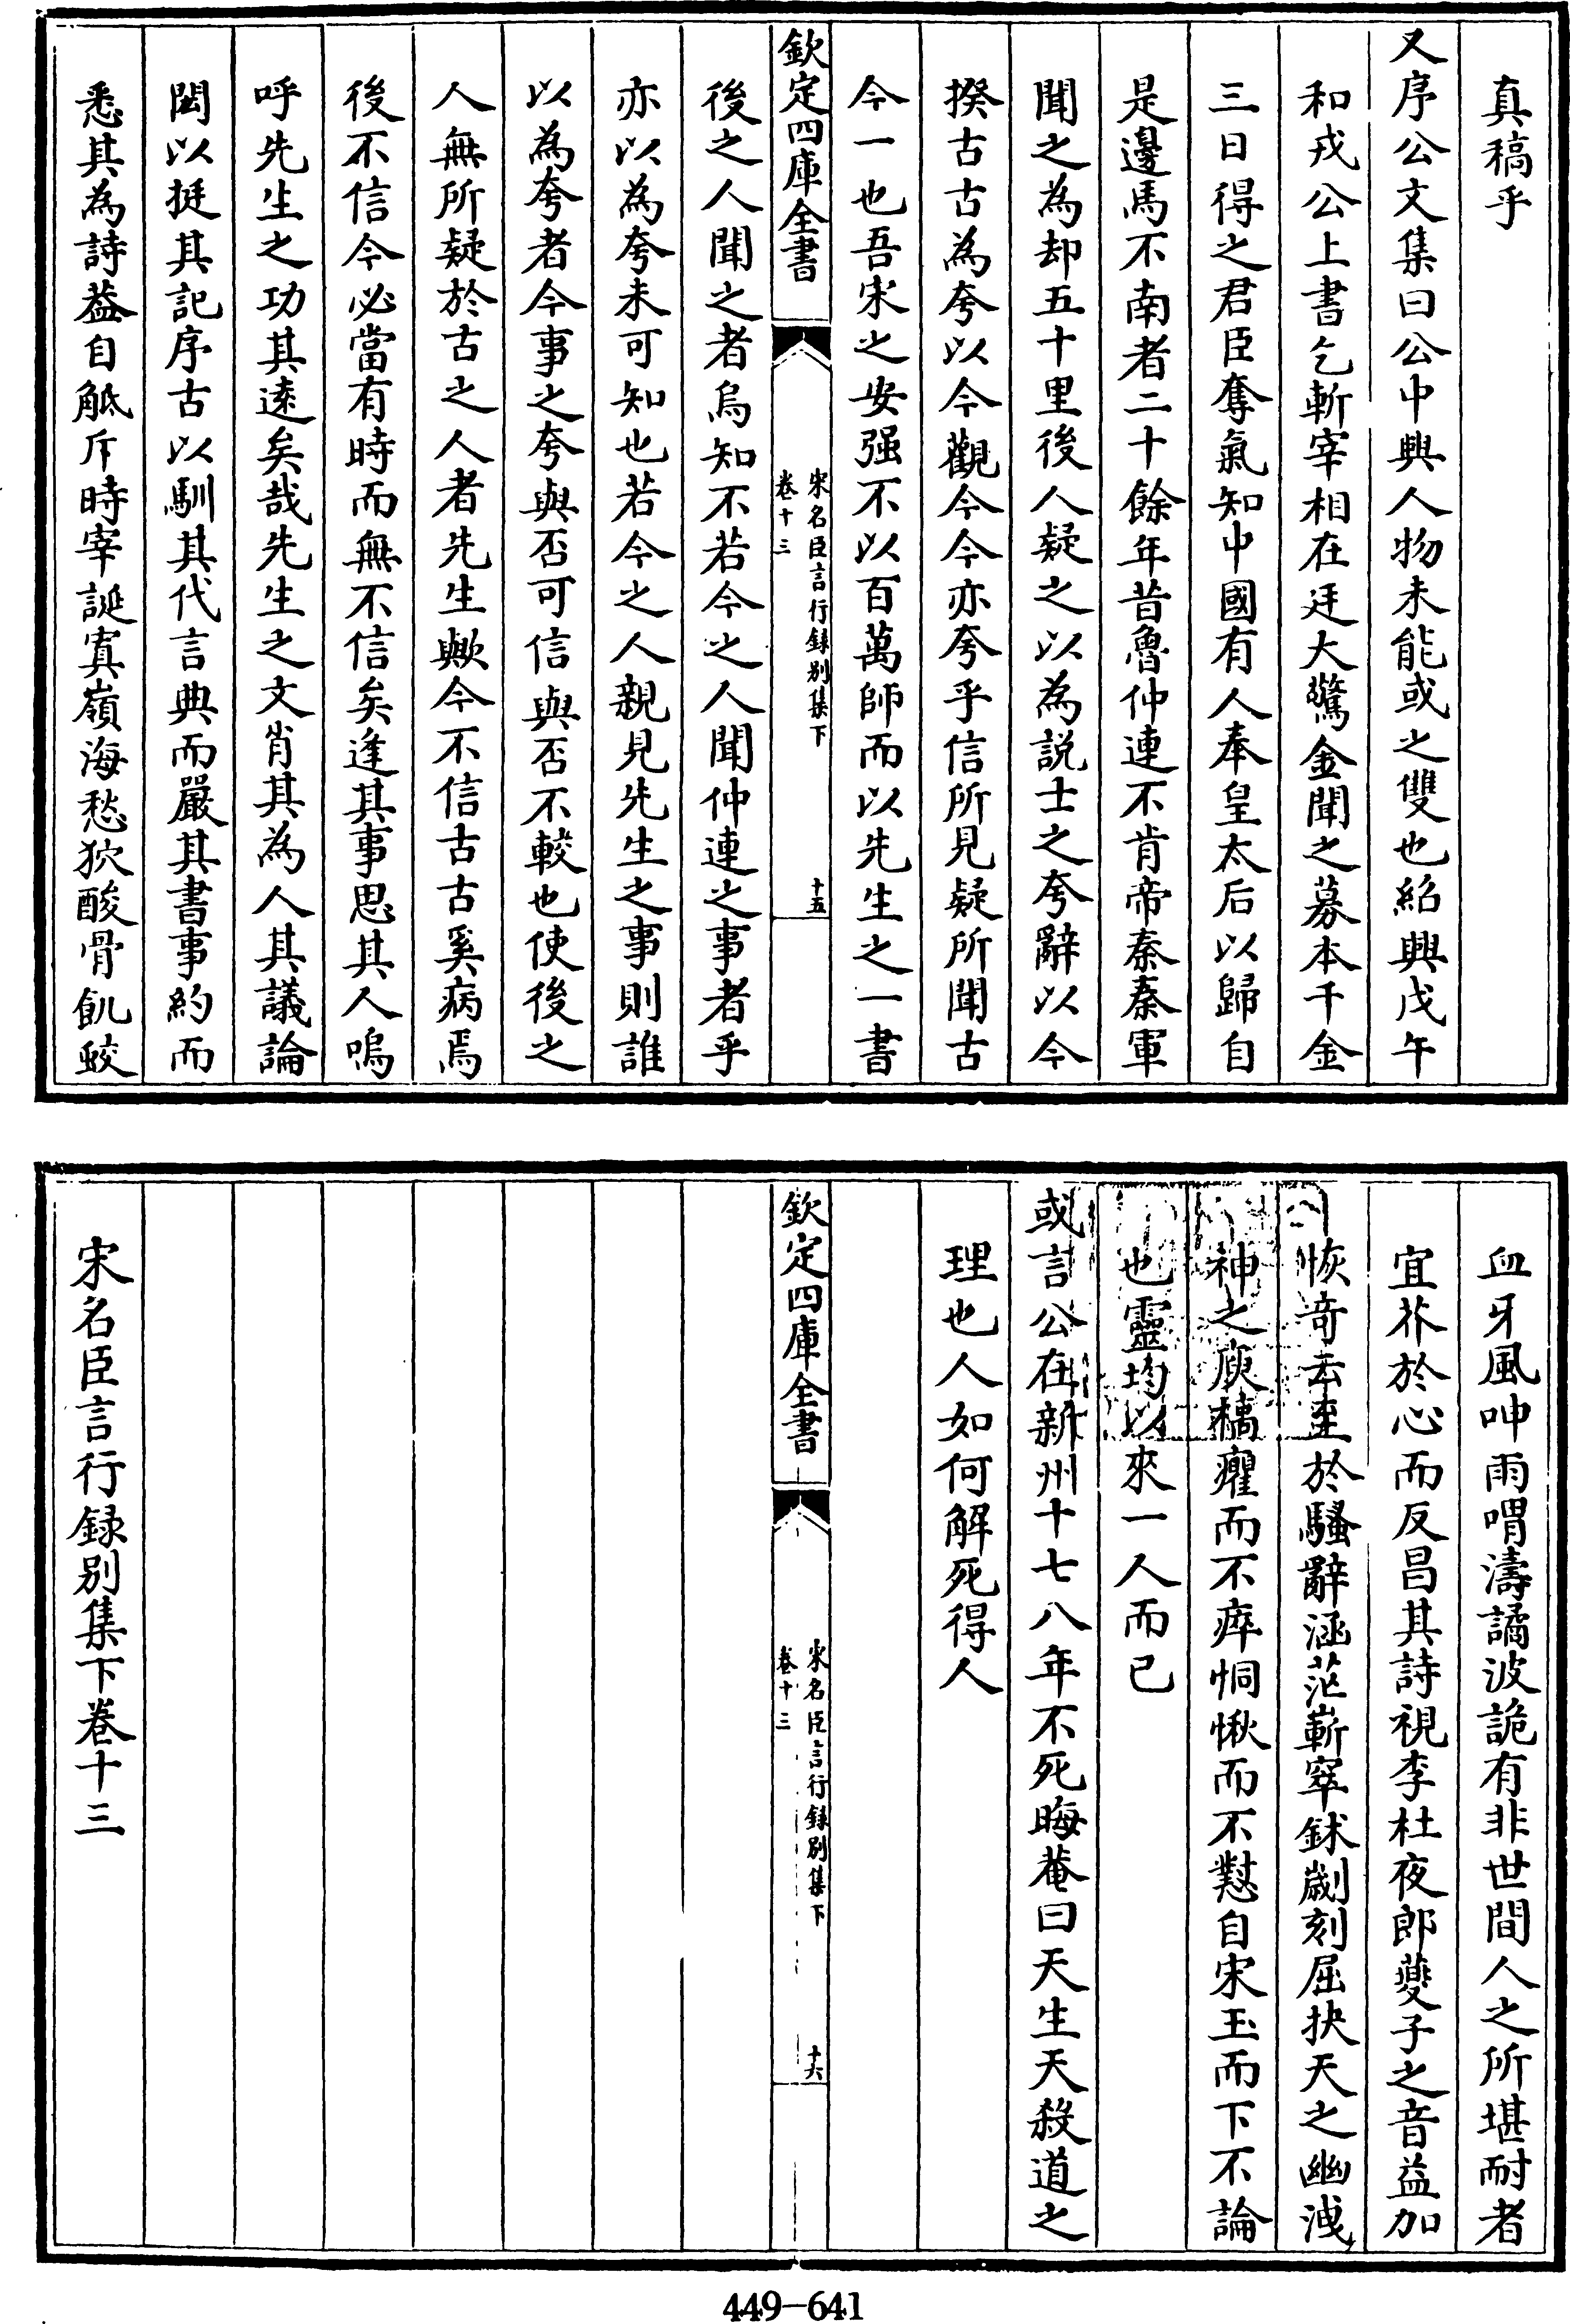 真稿乎
又序公文集曰公中興人物未能或之雙也紹興戊午
和戎公上書乞斬宰相在廷大驚金聞之募本千金
三日得之君臣奪氣知中國有人奉皇太后以歸自
是邊馬不南者二十餘年昔魯仲連不肯帝秦秦軍
聞之為却五十里後人疑之以為説士之夸辭以今
揆古古為夸以今觀今今亦夸乎信所見疑所聞古
今一也吾宋之安强不以百萬師而以先生之一書
欽定四庫全書
宋名臣言行録别集下
卷十三
十五
後之人聞之者烏知不若今之人聞仲連之事者乎
亦以為夸未可知也若今之人親見先生之事則誰
以為夸者今事之夸與否可信與否不較也使後之
人無所疑於古之人者先生歟今不信古古奚病焉
後不信今必當有時而無不信矣逢其事思其人嗚
呼先生之功其逺矣哉先生之文肖其為人其議論
閎以挺其記序古以馴其代言典而嚴其書事約而
悉其為詩葢自觝斥時宰誕寘嶺海愁狖酸骨飢蛟
血牙風呻雨喟濤譎波詭有非世間人之所堪耐者
宜芥於心而反昌其詩視李杜夜郎夔子之音益加
恢奇云至於騷辭涵茫嶄崒鉥劌刻屈抉天之幽洩
神之廋槁癯而不瘁恫愀而不懟自宋玉而下不論
也靈均以來一人而已
或言公在新州十七八年不死晦菴曰天生天殺道之
理也人如何解死得人
欽定四庫全書
宋名臣言行録别集下
卷十三
十六
宋名臣言行録别集下卷十三
449-641